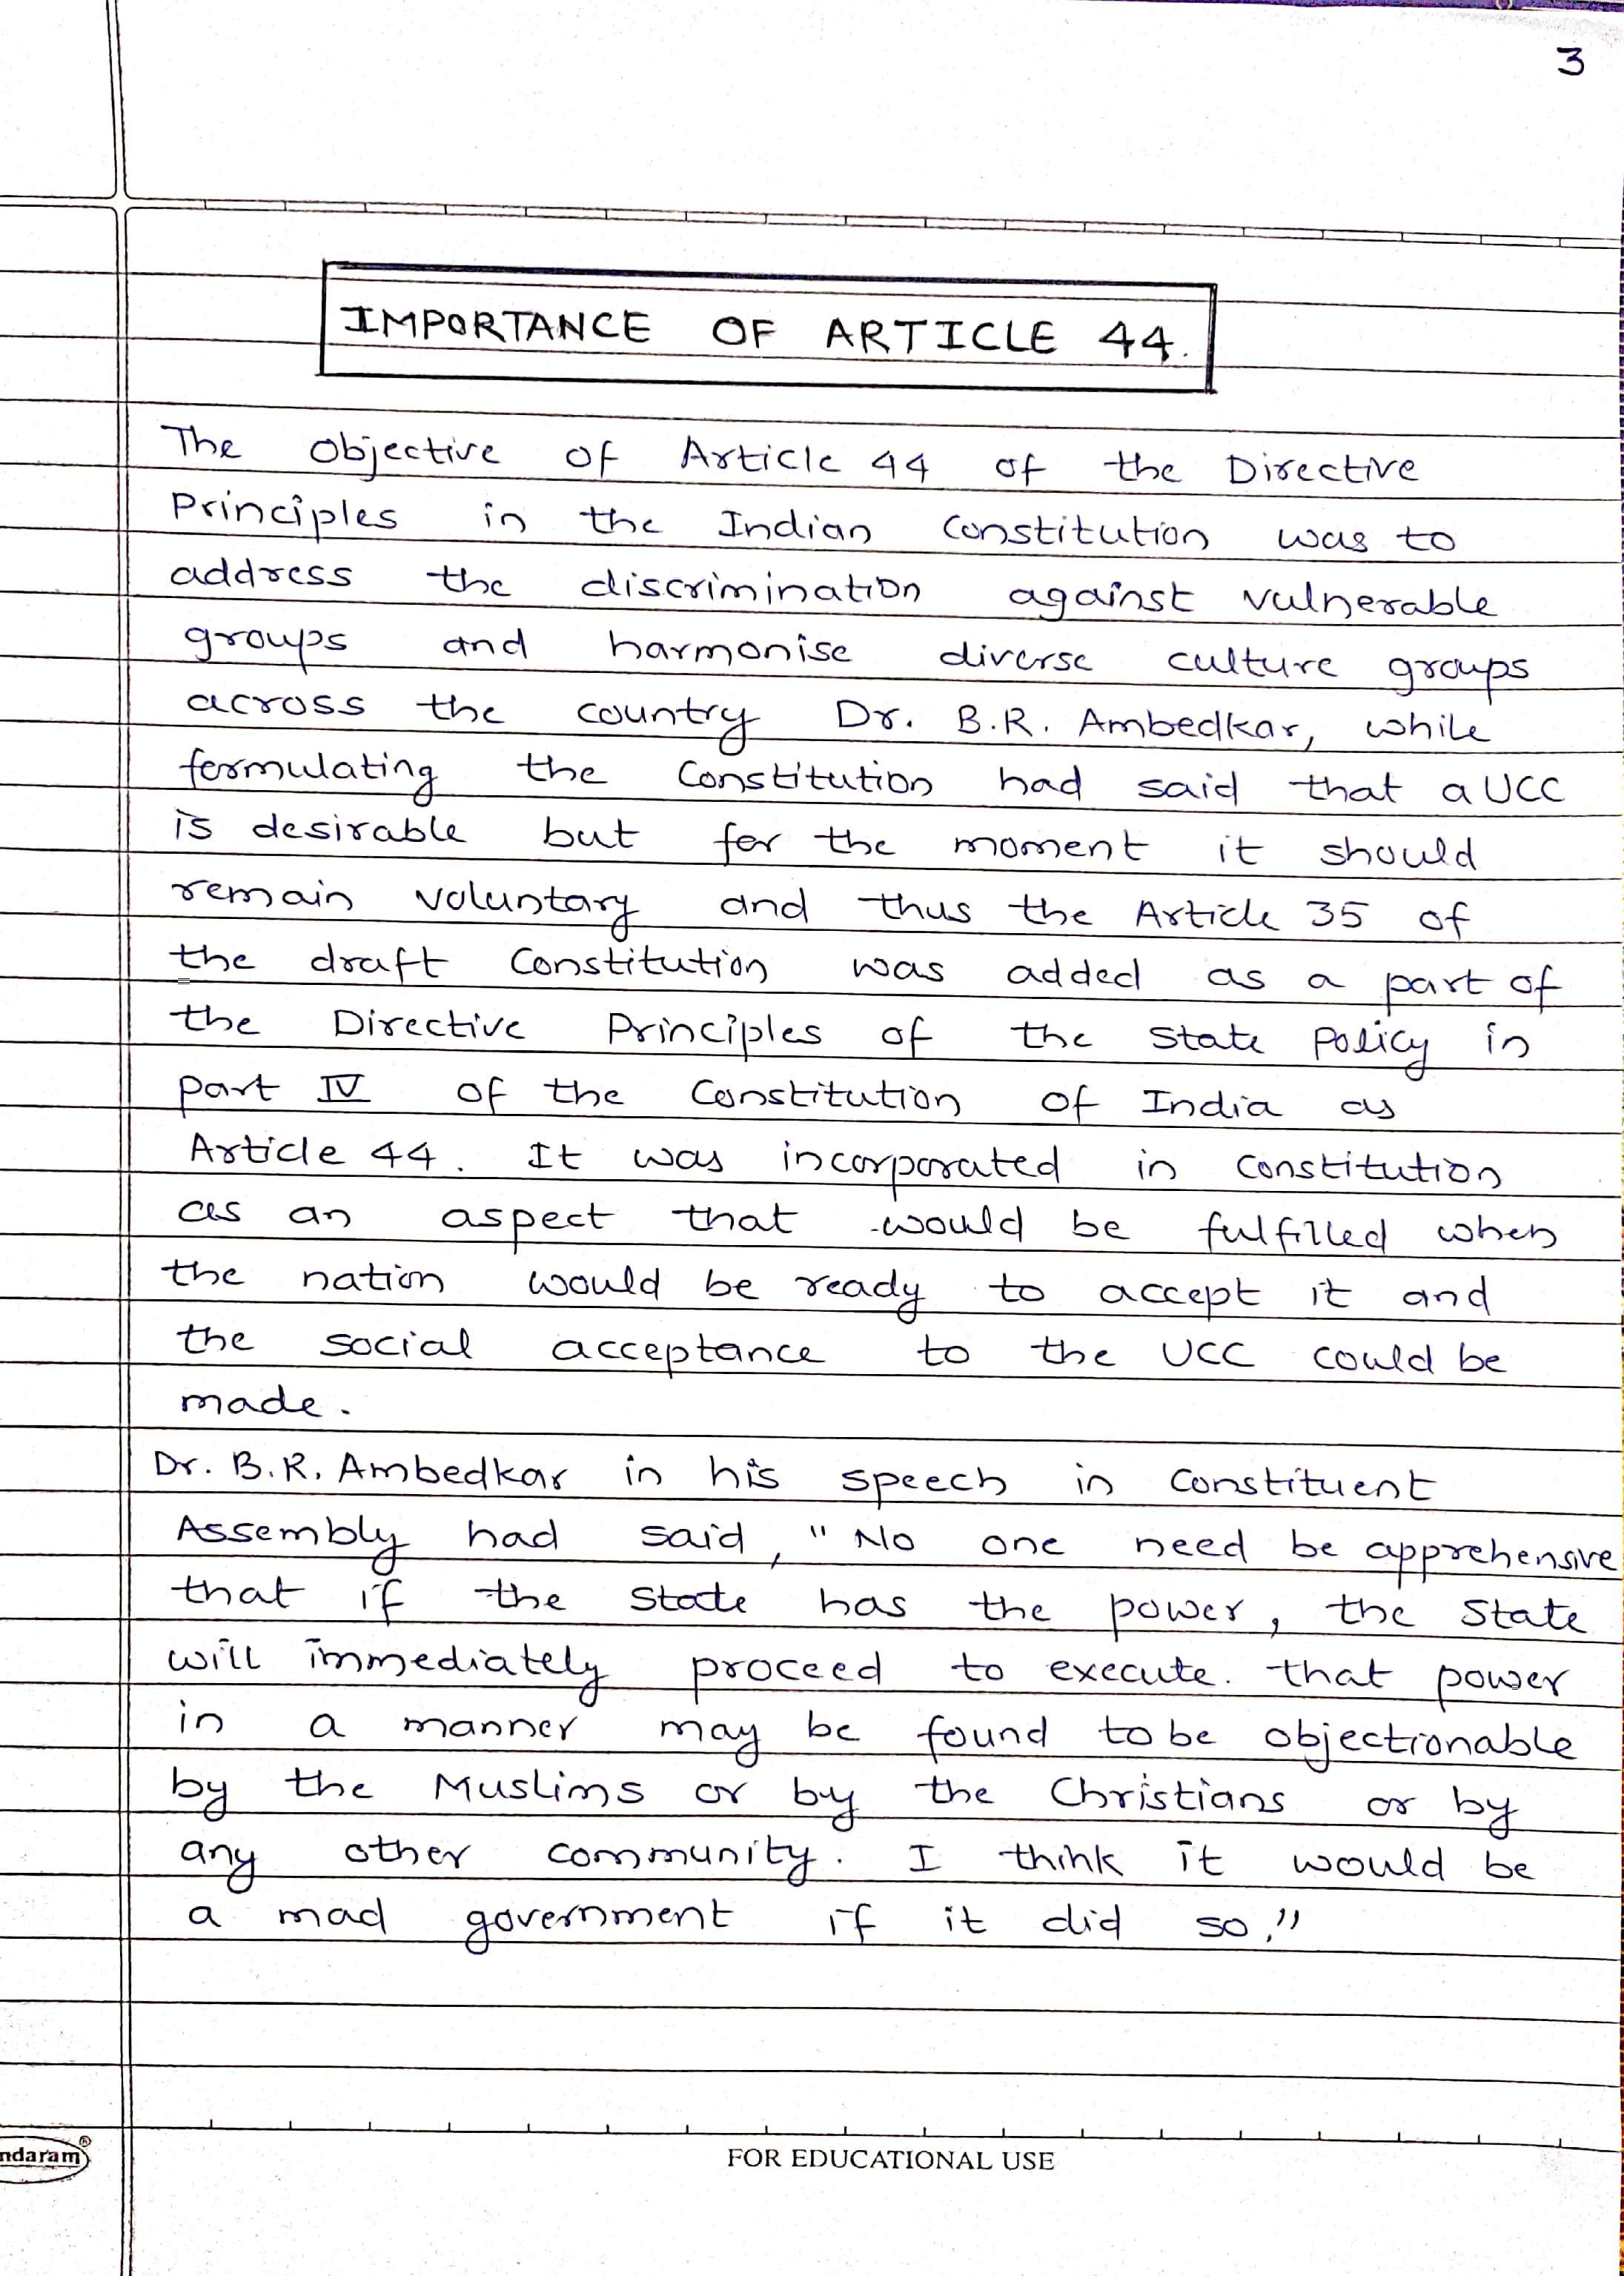 3
IMPORTANCE OF ARTICLE 44.
The Objective of Article 44 of the Directive
Principles in the Indian Constitution was to
address the discrimination against vulnerable
groups and harmonise diverse culture groups
across the country Dr. B.R. Ambedkar, while
formulating the Constitution had said that a UCC
is desirable but for the moment it should
remain voluntary and thus the Article 35 of
the draft Constitution was added as a part of
the Directive Principles of the State Policy in
part IV of the Constitution of India as
Article 44. It was incorporated in Constitution
as an aspect that would be fulfilled when
the nation would be ready to accept it and
the social acceptance to the UCC could be
made.
Dr. B.R. Ambedkar in his speech in Constituent
Assembly had said, "No one need be apprehensive
that if the State has the power, the State
will immediately proceed to execute. that power
in a manner may be found to be objectionable
by the Muslims or by the Christians or by
any other community. I think it would be
a mad government if it did so."
ndaram®
FOR EDUCATIONAL USE